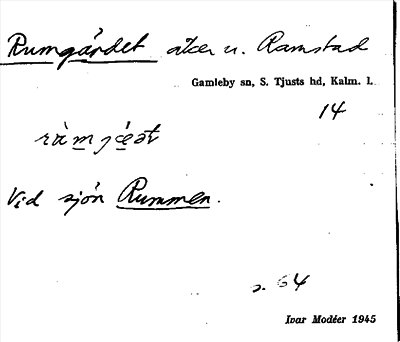 Rumgärdet åker u. Ramstad
Gamleby sn, S. Tjusts hd, Kalm. l.
14
Vid sjön Rummen.
s. 64
Ivar Modéer 1945